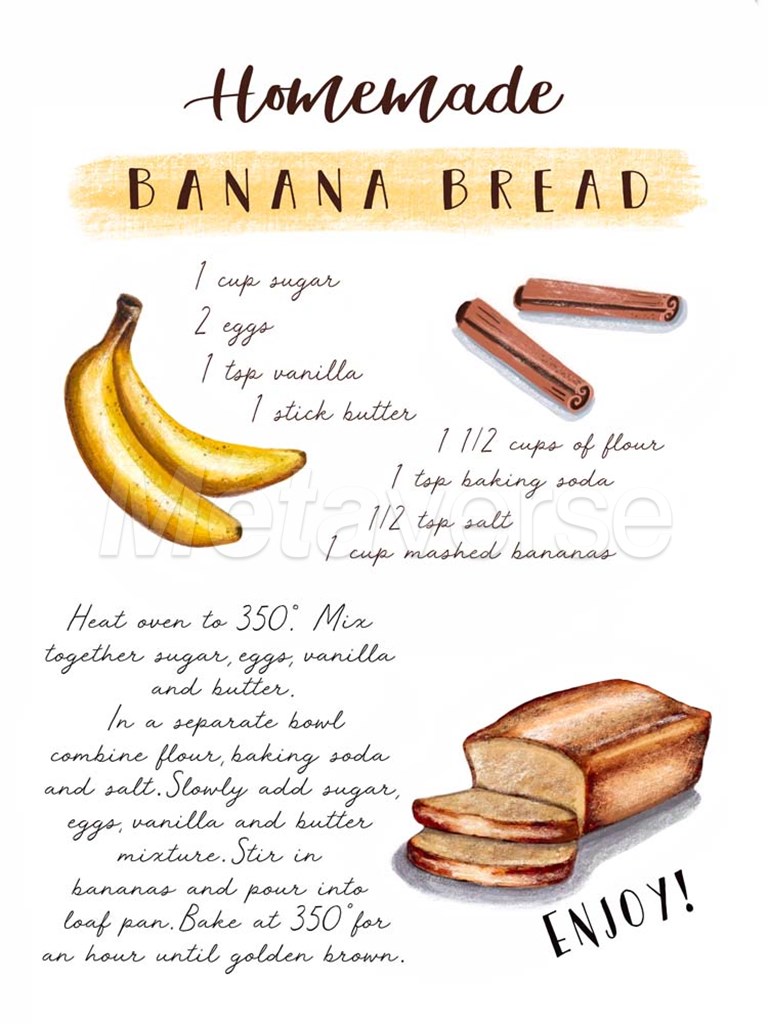 Homemade
BANANA BREAD
1 cup sugar
2 eggs
1 tsp vanilla
1 stick butter
1 1/2 cups of flour
1 tsp baking soda
1/2 tsp salt
1 cup mashed bananas
Metaverse
Heat oven to 350°. Mix
together sugar, eggs, vanilla
and butter.
In a separate bowl
combine flour, baking soda
and salt. Slowly add sugar,
eggs, vanilla and butter
mixture. Stir in
bananas and pour into
loaf pan. Bake at 350° for
an hour until golden brown.
ENJOY!